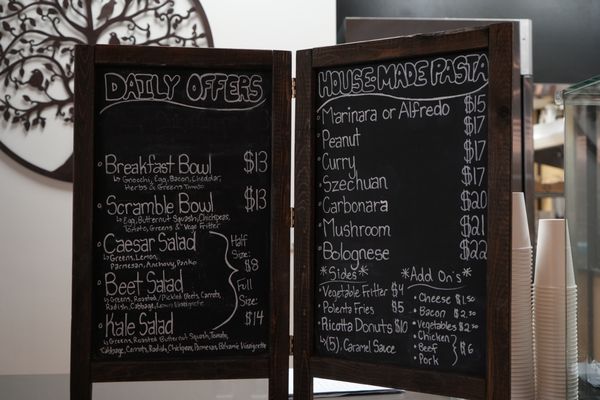 DAILY OFFERS
Breakfast Bowl $13
Gnocchi, Egg, Bacon, Cheddar,
Herbs & Greens
Scramble Bowl $13
Egg, Butternut Squash, Chickpeas,
Tomato, Greens & Vege Fritter
Caesar Salad
Greens, Lemon,
Parmesan, Anchovy, Panko
Beet Salad
Greens, Roasted/Pickled Beets, Carrots,
Radish, Cabbage, Lemon Vinaigrette
Kale Salad
Greens, Roasted Butternut Squash, Tomato,
Cabbage, Carrots, Radish, Chickpeas, Parmesan, Balsamic Vinaigrette
Half
Size:
$8
Full
Size:
$14
HOUSE-MADE PASTA
Marinara or Alfredo $15
Peanut $17
Curry $17
Szechuan $17
Carbonara $20
Mushroom $21
Bolognese $22
*Sides*
Vegetable Fritter $4
Polenta Fries $5
Ricotta Donuts $10
(5), Caramel Sauce
*Add On's*
Cheese $1.50
Bacon $2.50
Vegetables $2.50
Chicken
Beef $6
Pork